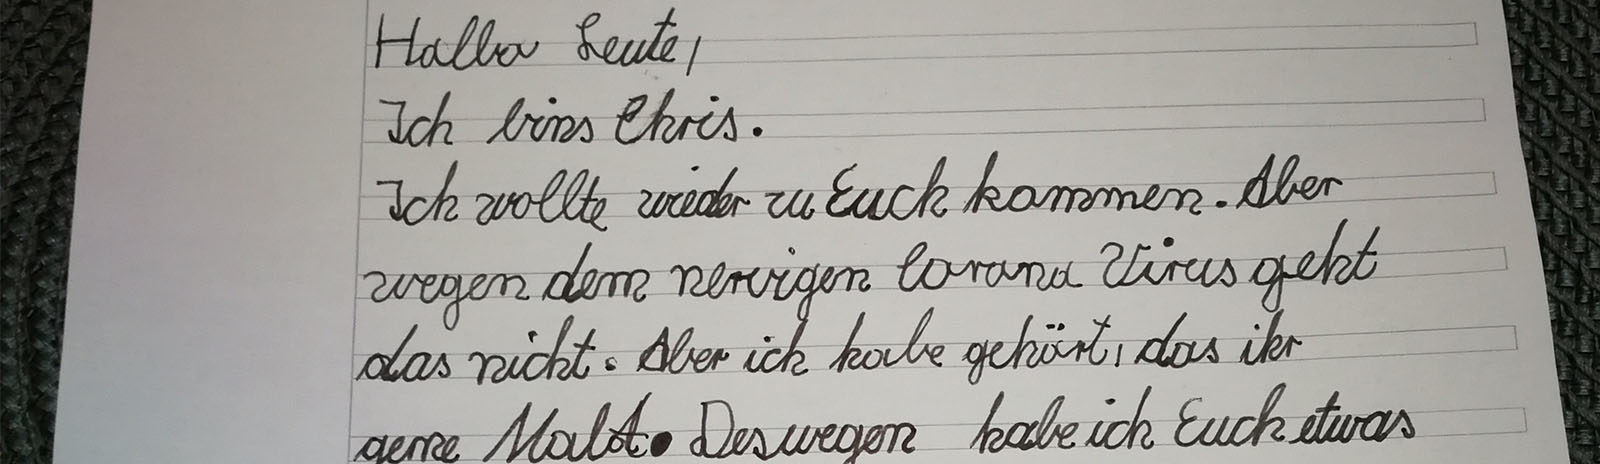 Hallo Leute,
Ich bins Chris.
Ich wollte wieder zu Euch kommen. Aber
wegen dem nervigen Corona Virus geht
das nicht. Aber ich habe gehört, das ihr
gerne Malt. Deswegen habe ich Euch etwas